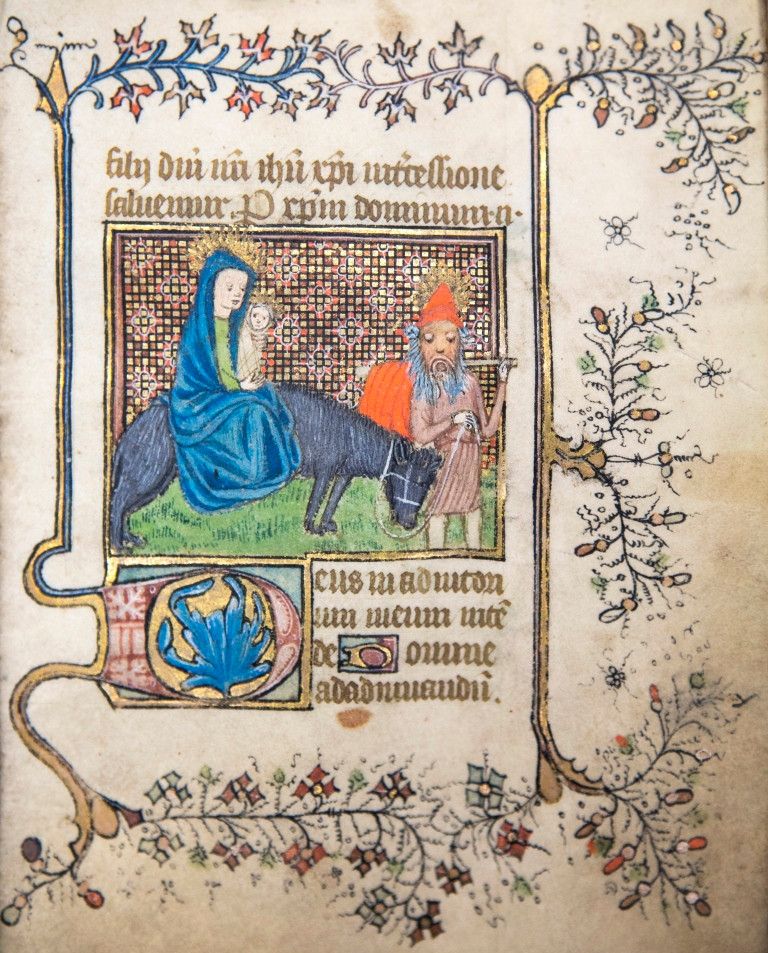 filij dn̄i nr̄i ihū xp̄i int̄cessione
saluemur. P xp̄m dominum. a.
Deus in adiutori
um meum intē
de Domine
ad adiuuandū.